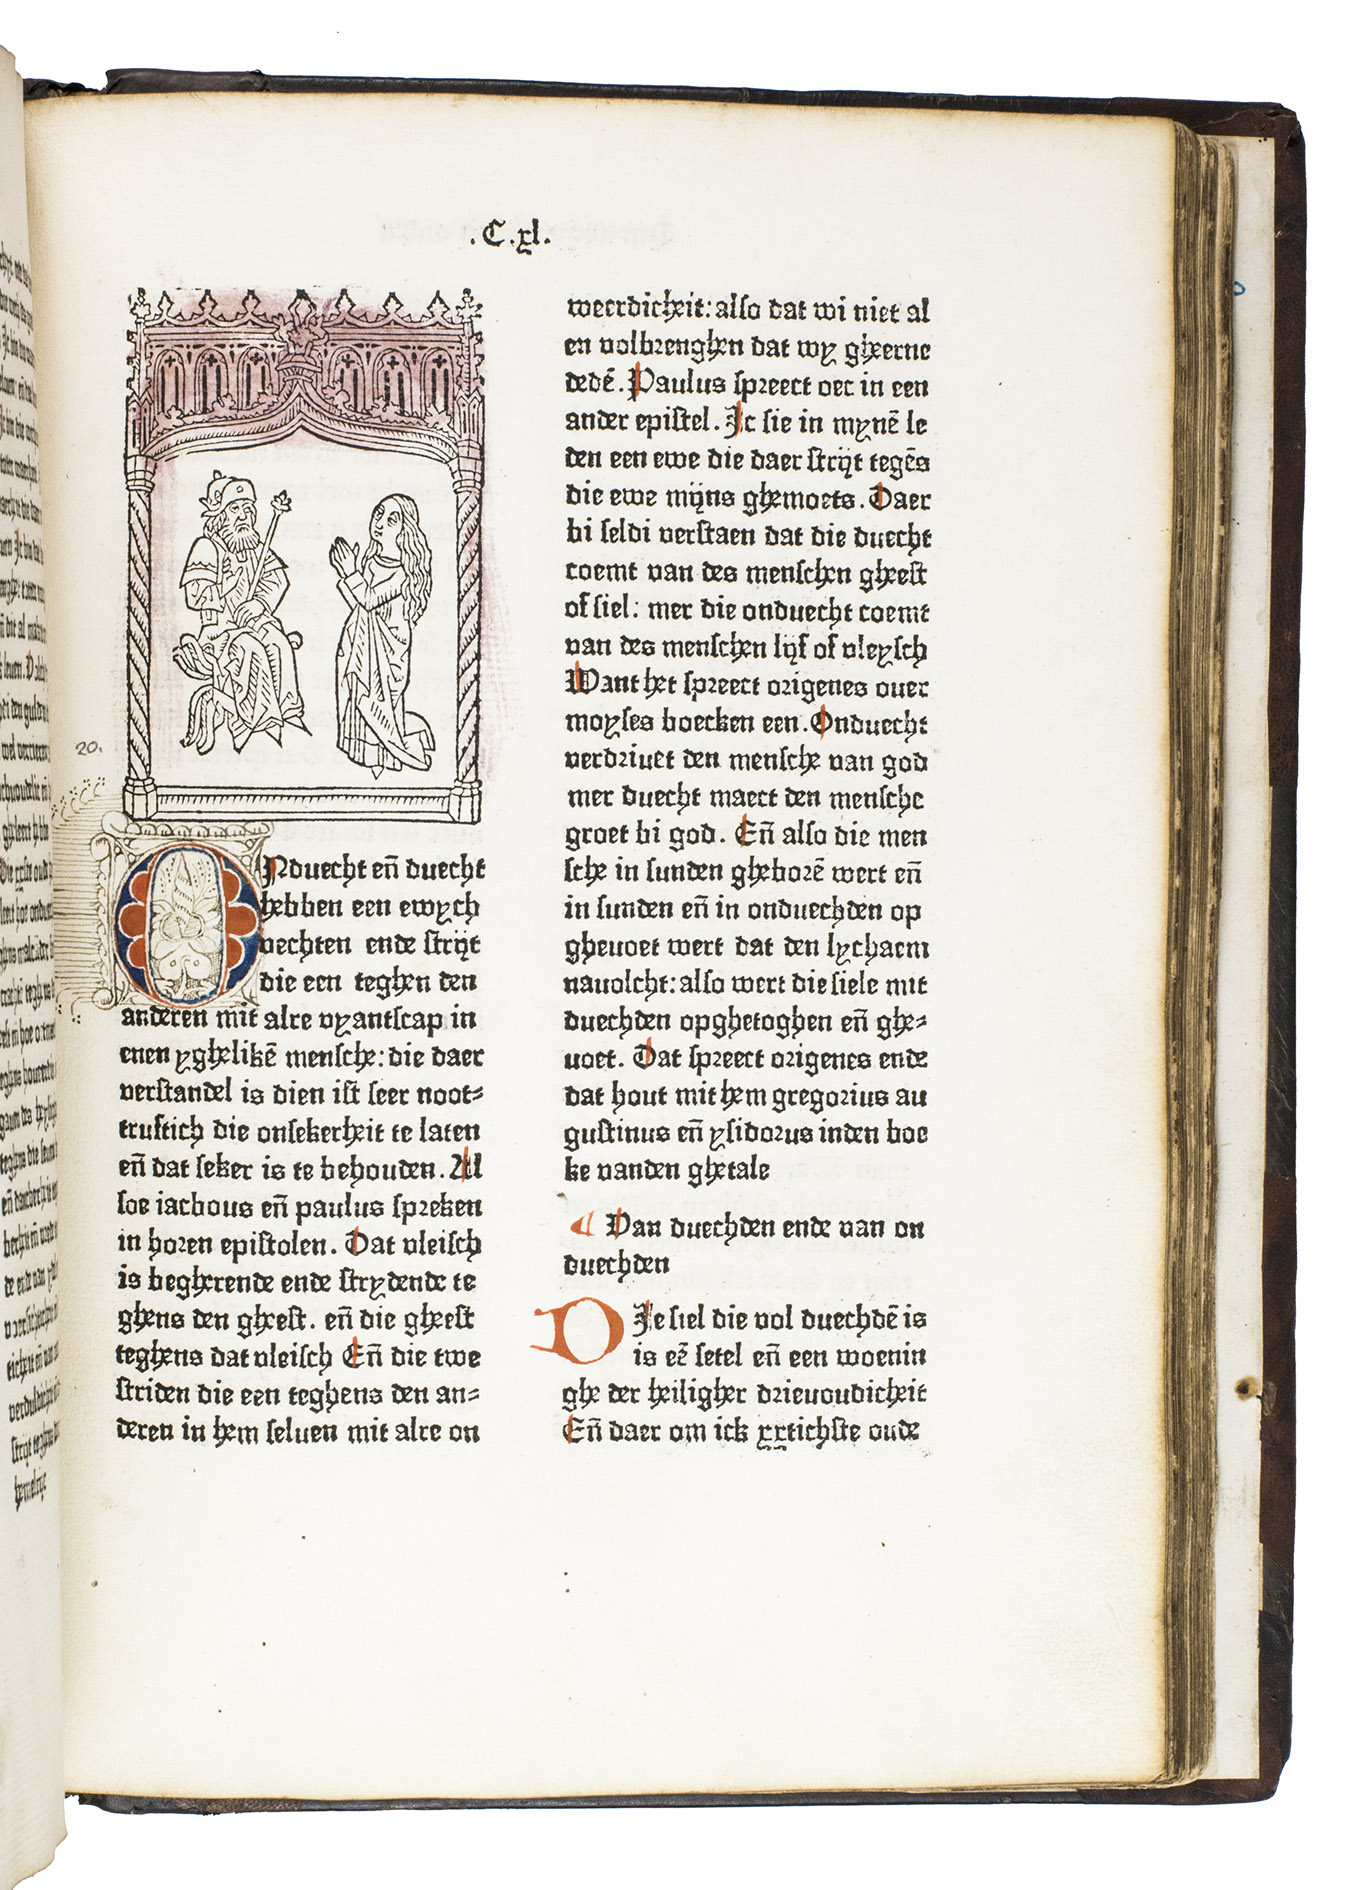 .C.xl.
20.
ONduecht eñ duecht
hebben een ewych
vechten ende strijt
die een teghen den
anderen mit alre vyantscap in
enen yghelikē mensche: die daer
verstandel is dien ist seer noot=
trustich die onsekerheit te laten
eñ dat seker is te behouden. Al
soe iacbous eñ paulus spreken
in horen epistolen. Dat vleisch
is begherende ende strydende te
ghens den gheest. eñ die gheest
teghens dat vleisch Eñ die twe
striden die een teghens den an=
deren in hem seluen mit alre on
weerdicheit: also dat wi niet al
en volbrenghen dat wy gheerne
dedē. Paulus spreect oec in een
ander epistel. Jc sie in mynē le
den een ewe die daer strijt tegēs
die ewe mijns ghemoets. Daer
bi seldi verstaen dat die duecht
coemt van des menschen gheest
of siel: mer die onduecht coemt
van des menschen lijf of vleysch
Want het spreect origenes ouer
moyses boecken een. Onduecht
verdriuet den mensche van god
mer duecht maect den mensche
groet bi god. Eñ also die men
sche in sunden gheborē wert eñ
in sunden eñ in onduechden op
gheuoet wert dat den lychaem
nauolcht: also wert die siele mit
duechden opghetoghen eñ ghe=
uoet. Dat spreect origenes ende
dat hout mit hem gregorius au
gustinus eñ ysidorus inden boe
ke vanden ghetale
¶ Van duechden ende van on
duechden
DJe siel die vol duechdē is
is eē setel eñ een woenin
ghe der heiligher drieuoudicheit
Eñ daer om ick xxtichste oude